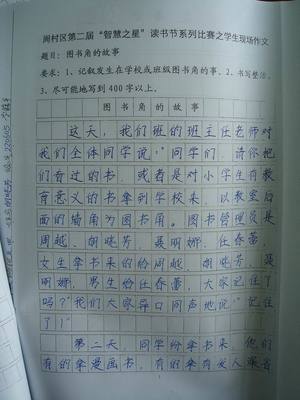 阁村区第二届“智慧之星”读书节系列比赛之学生现场作文
题目：图书角的故事
要求：1、记叙发生在学校或班级图书角的事。2、书写整洁。
3、尽可能地写到400字以上。
图书角的故事
这天，我们班的班主任老师对
我们全体同学说：“同学们，请你把
们看过的书，或者是对小学生有教
育意义的书拿到学校来，以教室后
面的墙角为图书角。图书管理员是
周越、胡晓芳、聂丽娜、任春蕾，
女生拿书来的给周越、胡晓芳、聂
丽娜，男生给任春蕾，大家记住了
吗？”我们大家异口同声地说：“记住
了！”
第二天，同学纷拿书来，他们
有的拿漫画书，有的拿有女人